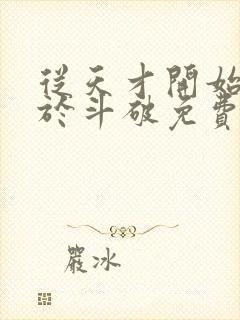 從天才開始
於斗破免費
嚴冰